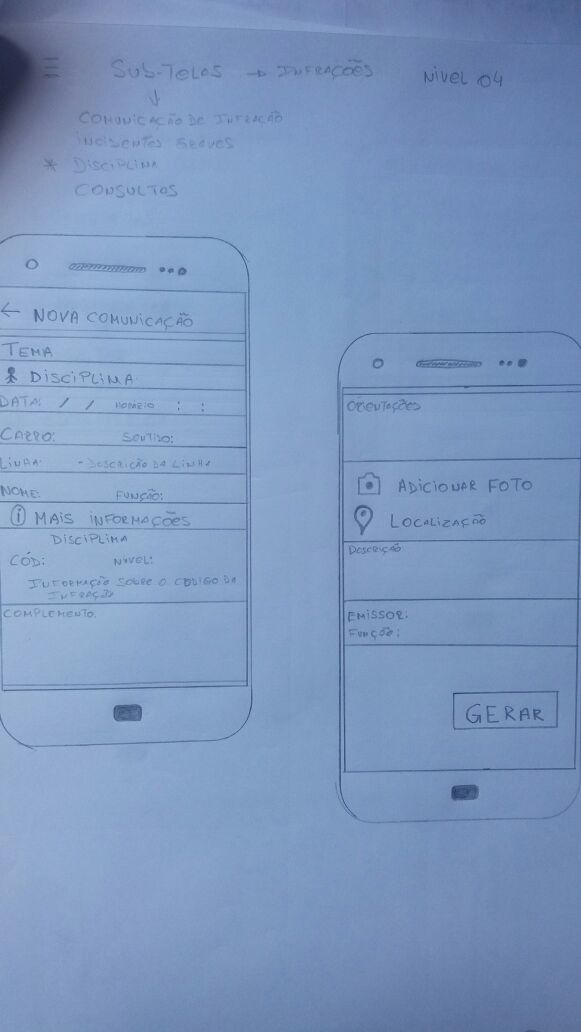 SUB-TELAS → INFRAÇÕES NIVEL 04
COMUNICAÇÃO DE INFRAÇÃO
INCIDENTES GRAVES
* DISCIPLINA
CONSULTAS
← NOVA COMUNICAÇÃO
TEMA
DISCIPLINA
DATA: / / HORARIO : :
CARRO: SENTIDO:
LINHA: - DESCRIÇÃO DA LINHA
NOME: FUNÇÃO:
i MAIS INFORMAÇÕES
DISCIPLINA
CÓD: NIVEL:
INFORMAÇÃO SOBRE O CODIGO DA
INFRAÇÃO
COMPLEMENTO:
ORIENTAÇÕES
ADICIONAR FOTO
LOCALIZAÇÃO
DESCRIÇÃO
EMISSOR:
FUNÇÃO:
GERAR